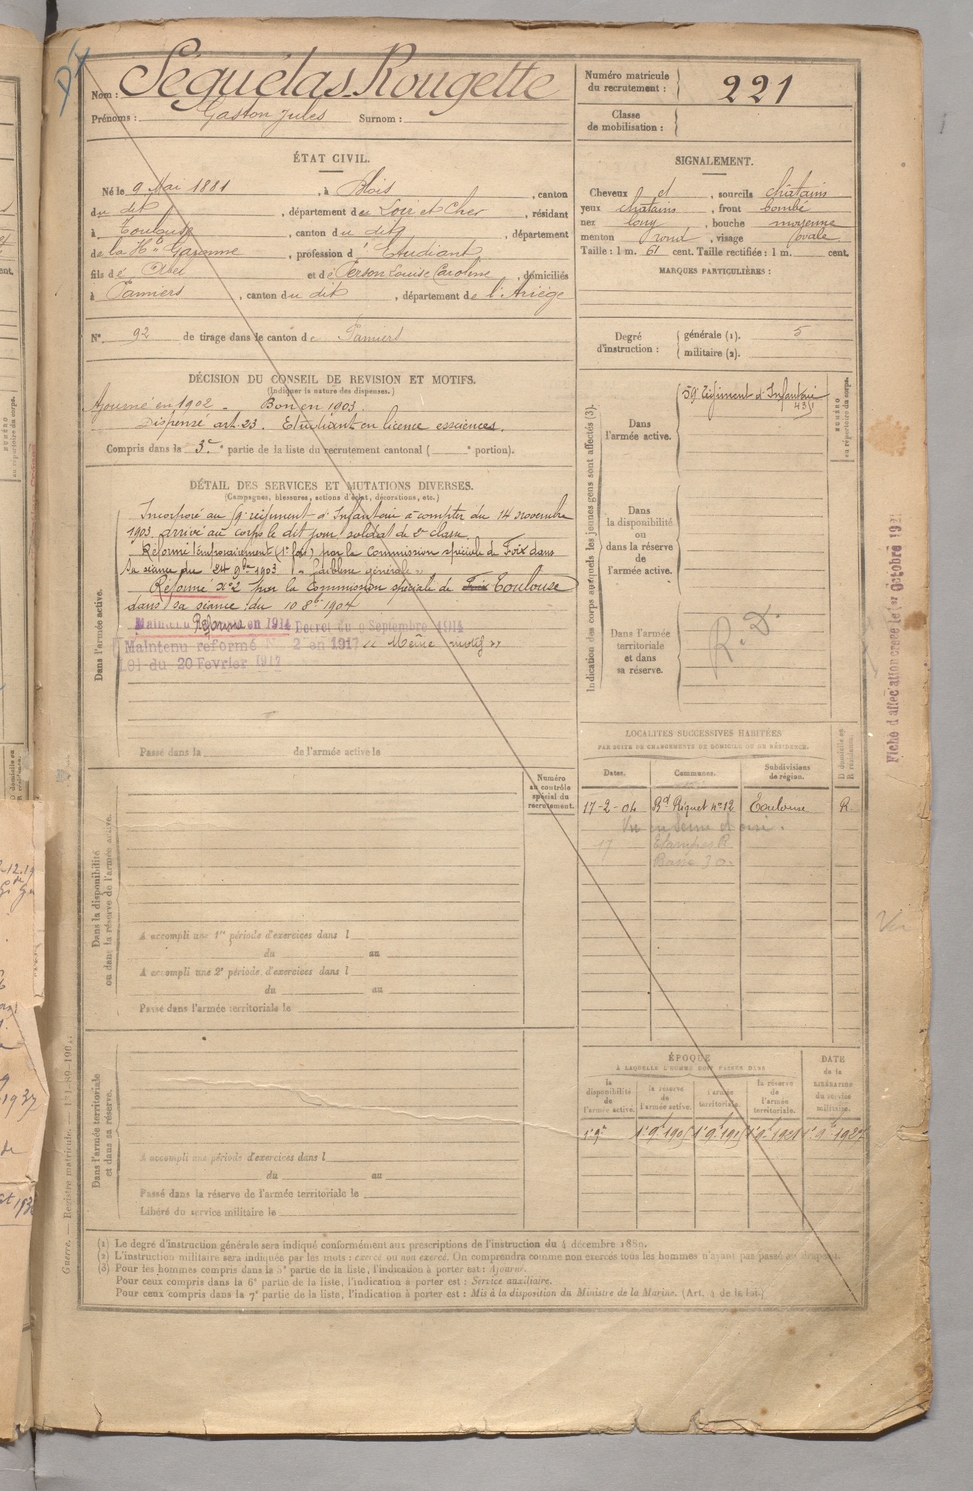 Nom : Séguélas-Rougette
Prénoms : Gaston Jules Surnom :
Numéro matricule du recrutement : 221
Classe de mobilisation :
ÉTAT CIVIL.
Né le 9 Mai 1881, à Blois, canton
du dit, département de Loir et Cher, résidant
à Toulouse, canton du dit, département
de la Hte Garonne, profession d'Etudiant
fils de Abel et de Terson Louise Caroline, domiciliés
à Pamiers, canton du dit, département de l'Ariège
N° 92 de tirage dans le canton de Pamiers
SIGNALEMENT.
Cheveux et, sourcils châtains
yeux châtains, front bombé
nez long, bouche moyenne
menton rond, visage ovale
Taille : 1 m. 61 cent. Taille rectifiée : 1 m. cent.
MARQUES PARTICULIÈRES :
Degré d'instruction : générale (1). 5
militaire (2).
DÉCISION DU CONSEIL DE REVISION ET MOTIFS.
(Indiquer la nature des dispenses.)
Ajourné en 1902 - Bon en 1903.
Dispensé art. 23. Etudiant en licence essciences.
Compris dans la 3e partie de la liste du recrutement cantonal ( e portion).
DÉTAIL DES SERVICES ET MUTATIONS DIVERSES.
(Campagnes, blessures, actions d'éclat, décorations, etc.)
Dans l'armée active.
Incorporé au régiment d'Infanterie à compter du 14 novembre
1903 arrivé au corps le dit jour, soldat de 2e classe.
Réformé temporairement (1e fois) par la Commission spéciale de Foix dans
sa séance du 24 9bre 1903 « faiblesse générale »
Réformé n°2 par la Commission spéciale de Foix Toulouse
dans sa séance du 10 8bre 1904
Maintenu Réformé en 1914 Décret du 9 Septembre 1914
Maintenu réformé N° 2 en 1917 « Même motif »
Loi du 20 Février 1917
Passé dans la de l'armée active le
Indication des corps auxquels les jeunes gens sont affectés (3).
NUMÉRO au répertoire du corps.
Dans l'armée active.
59e régiment d'Infanterie
Dans la disponibilité ou dans la réserve de l'armée active.
Dans l'armée territoriale et dans sa réserve.
R. D.
LOCALITÉS SUCCESSIVES HABITÉES
PAR SUITE DE CHANGEMENTS DE DOMICILE OU DE RÉSIDENCE.
Dates. Communes. Subdivisions de région. D domicile ou R résidence.
17-2-04 Bd Riquet n° 12 Toulouse R
Vu en Seine et Oise.
Etampes R
Fiche d'affectation créée le 1er Octobre 1921
Dans la disponibilité ou dans la réserve de l'armée active.
Numéro au contrôle spécial du recrutement.
A accompli une 1re période d'exercices dans l
du au
A accompli une 2e période d'exercices dans l
du au
Passé dans l'armée territoriale le
Dans l'armée territoriale et dans sa réserve.
A accompli une période d'exercices dans l
du au
Passé dans la réserve de l'armée territoriale le
Libéré du service militaire le
ÉPOQUE
À LAQUELLE L'HOMME DOIT PASSER DANS
la disponibilité de l'armée active.
la réserve de l'armée active.
l'armée territoriale.
la réserve de l'armée territoriale.
DATE de la LIBÉRATION du service militaire.
Guerre. — Registre matricule.
(1) Le degré d'instruction générale sera indiqué conformément aux prescriptions de l'instruction du 4 décembre 1889.
(2) L'instruction militaire sera indiquée par les mots : exercé ou non exercé. On comprendra comme non exercés tous les hommes n'ayant pas passé au drapeau.
(3) Pour les hommes compris dans la 5e partie de la liste, l'indication à porter est : Ajourné.
Pour ceux compris dans la 6e partie de la liste, l'indication à porter est : Service auxiliaire.
Pour ceux compris dans la 7e partie de la liste, l'indication à porter est : Mis à la disposition du Ministre de la Marine. (Art. 4 de la loi.)